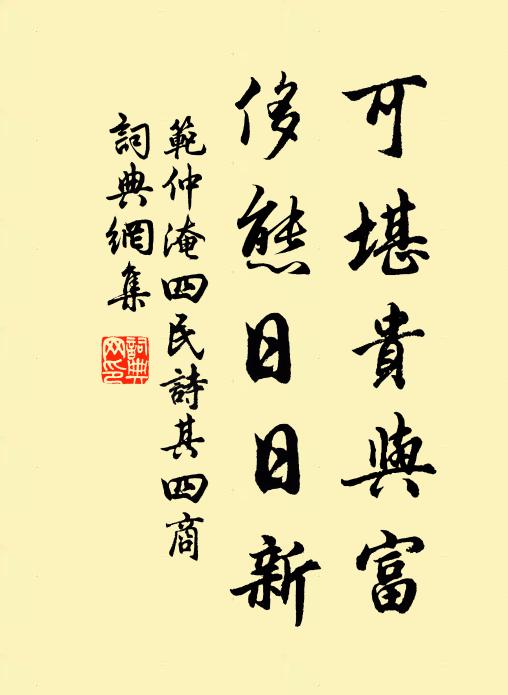 可堪貴與富
侈態日日新
範仲淹四民詩其四商
詞典網集
詞典網印